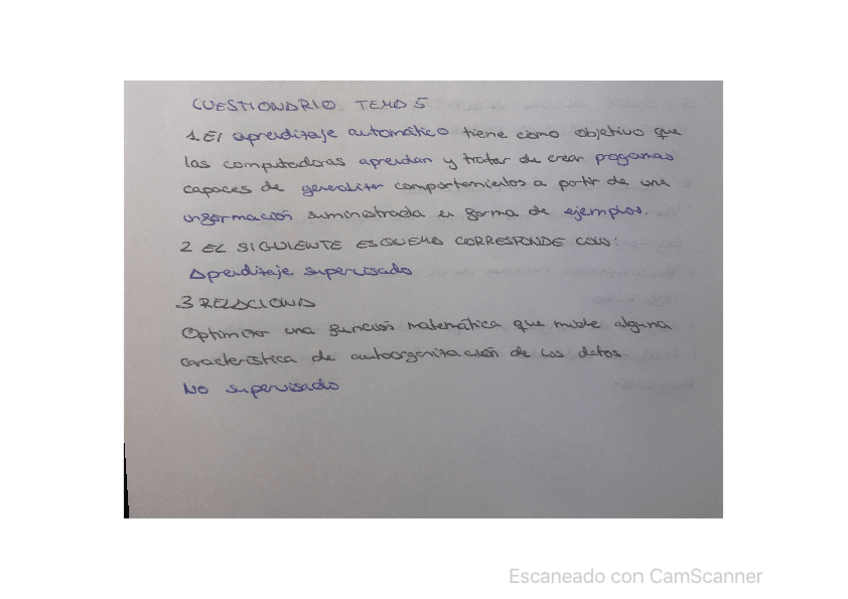 CUESTIONARIO TEMA 5
1. El aprendizaje automático tiene como objetivo que
las computadoras aprendan y tratar de crear pogamas
capaces de generalizar comportamientos a partir de una
información suministrada en forma de ejemplos.
2 EL SIGUIENTE ESQUEMA CORRESPONDE CON:
Aprendizaje supervisado
3 RELACIONA
Optimizar una función matemática que mide alguna
característica de autoorganización de los datos.
No supervisado
Escaneado con CamScanner